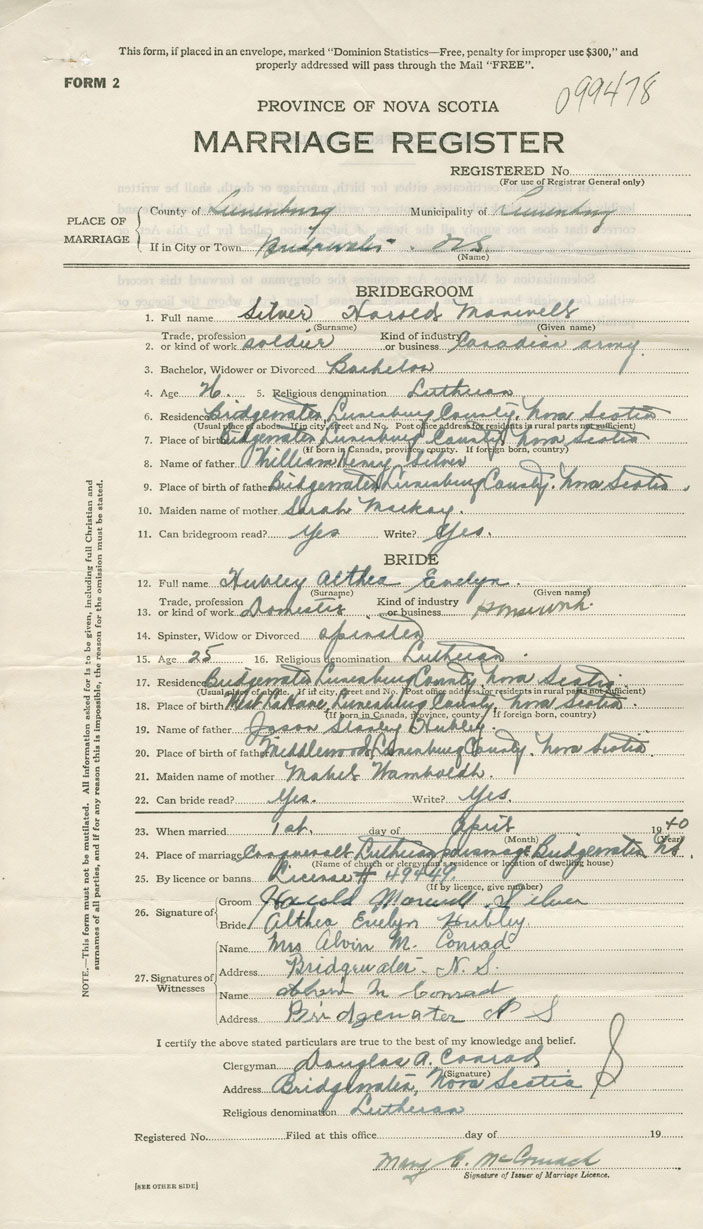 This form, if placed in an envelope, marked "Dominion Statistics—Free, penalty for improper use $300," and
properly addressed will pass through the Mail "FREE".
FORM 2
099478
PROVINCE OF NOVA SCOTIA
MARRIAGE REGISTER
REGISTERED No.
(For use of Registrar General only)
PLACE OF MARRIAGE
County of Lunenburg Municipality of Lunenburg
If in City or Town Bridgewater N.S.
(Name)
BRIDEGROOM
1. Full name Silver Harold Maxwell
(Surname) (Given name)
2. Trade, profession or kind of work soldier Kind of industry or business Canadian army
3. Bachelor, Widower or Divorced Bachelor
4. Age 26. 5. Religious denomination Lutheran
6. Residence Bridgewater, Lunenburg County, Nova Scotia
(Usual place of abode. If in city, street and No. Post office address for residents in rural parts not sufficient)
7. Place of birth Bridgewater, Lunenburg County, Nova Scotia
(If born in Canada, province, county. If foreign born, country)
8. Name of father William Henry Silver
9. Place of birth of father Bridgewater, Lunenburg County. Nova Scotia.
10. Maiden name of mother Sarah Mackay.
11. Can bridegroom read? Yes Write? Yes.
BRIDE
12. Full name Hubley Althea Evelyn.
(Surname) (Given name)
13. Trade, profession or kind of work Domestic Kind of industry or business Housework.
14. Spinster, Widow or Divorced spinster
15. Age 25 16. Religious denomination Lutheran
17. Residence Bridgewater, Lunenburg County, Nova Scotia
(Usual place of abode. If in city, street and No. Post office address for residents in rural parts not sufficient)
18. Place of birth West LaHave, Lunenburg County. Nova Scotia.
(If born in Canada, province, county If foreign born, country)
19. Name of father Jason Stanley Hubley.
20. Place of birth of father Middlewood, Lunenburg County. Nova Scotia.
21. Maiden name of mother Mabel Wamboldh.
22. Can bride read? Yes. Write? Yes.
23. When married 1st. day of April 1940
(Month) (Year)
24. Place of marriage Lutheran parsonage Bridgewater N.S.
(Name of church or clergyman's residence or location of dwelling house)
25. By licence or banns License # 49449
(If by licence, give number)
26. Signature of
Groom Harold Maxwell Silver
Bride Althea Evelyn Hubley
27. Signatures of Witnesses
Name Mrs Alvin M. Conrad
Address Bridgewater N.S.
Name Alvin M Conrad
Address Bridgewater N S
I certify the above stated particulars are true to the best of my knowledge and belief.
Clergyman Douglas A. Conrad
(Signature)
Address Bridgewater, Nova Scotia
Religious denomination Lutheran
Registered No. Filed at this office day of 19
Mary E. McCormack
Signature of Issuer of Marriage Licence.
[SEE OTHER SIDE]
NOTE.—This form must not be mutilated. All information asked for is to be given, including full Christian and
surnames of all parties, and if for any reason this is impossible, the reason for the omission must be stated.